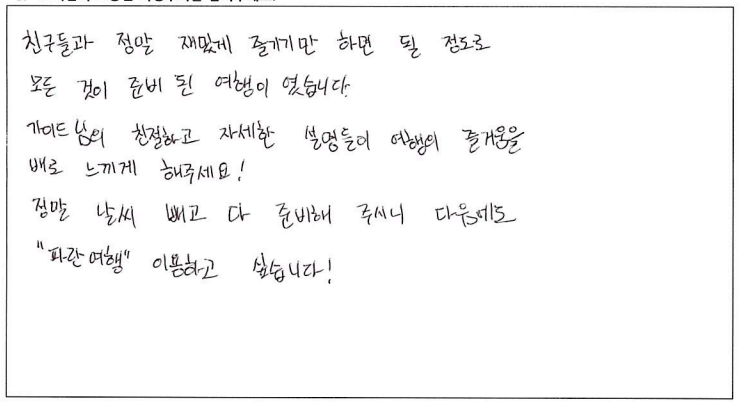 친구들과 정말 재밌게 즐기기만 하면 될 정도로
모든 것이 준비 된 여행이 였습니다.
가이드님의 친절하고 자세한 설명들이 여행의 즐거움을
배로 느끼게 해주세요!
정말 날씨 빼고 다 준비해 주시니 다음에도
"파란여행" 이용하고 싶습니다!